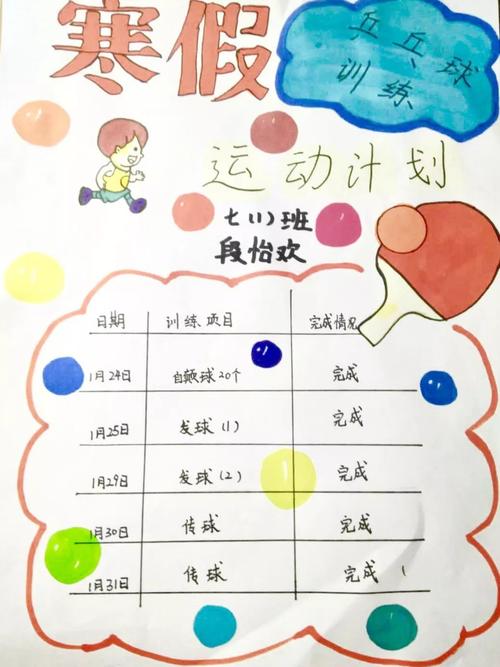 寒假
乒乓球
训练
运动计划
七(1)班
段怡欢
日期 训练项目 完成情况
1月24日 自颠球20个 完成
1月25日 发球(1) 完成
1月29日 发球(2) 完成
1月30日 传球 完成
1月31日 传球 完成